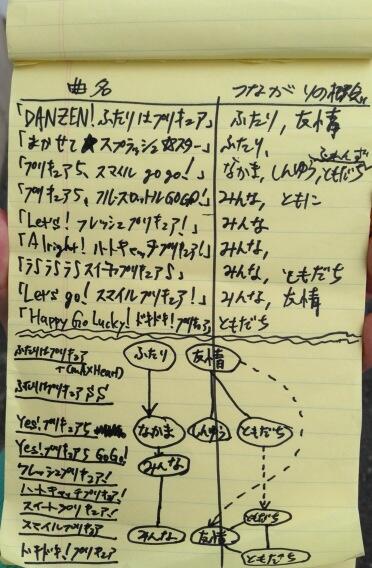 曲名 つながりの概念
「DANZEN!ふたりはプリキュア」 ふたり, 友情
「まかせて★スプラッシュ☆スター」 ふたり,
「プリキュア5、スマイル go go!」 なかま, しんゆう, ともだち
「プリキュア5、フル・スロットルGOGO!」 みんな, ともに
「Let's!フレッシュプリキュア!」 みんな
「Alright!ハートキャッチプリキュア!」 みんな,
「ラ♪ラ♪ラ♪スイートプリキュア♪」 みんな, ともだち
「Let's go!スマイルプリキュア!」 みんな, 友情
「Happy Go Lucky!ドキドキ!プリキュア ともだち
ふたりはプリキュア ふたり 友情
+(MaxHeart)
ふたりはプリキュアSS
Yes!プリキュア5 なかま しんゆう ともだち
Yes!プリキュア5 GoGo! みんな
フレッシュプリキュア!
ハートキャッチプリキュア!
スイートプリキュア! ともだち
スマイルプリキュア みんな 友情
ドキドキ!プリキュア ともだち